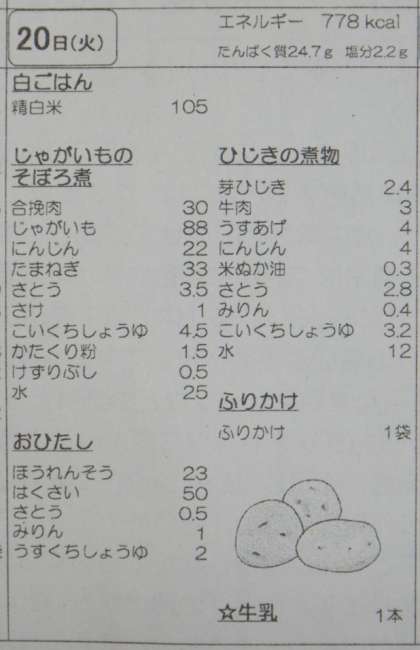 20日(火)
エネルギー 778 kcal
たんぱく質24.7g 塩分2.2g
白ごはん
精白米 105
じゃがいもの
そぼろ煮
合挽肉 30
じゃがいも 88
にんじん 22
たまねぎ 33
さとう 3.5
さけ 1
こいくちしょうゆ 4.5
かたくり粉 1.5
けずりぶし 0.5
水 25
おひたし
ほうれんそう 23
はくさい 50
さとう 0.5
みりん 1
うすくちしょうゆ 2
ひじきの煮物
芽ひじき 2.4
牛肉 3
うすあげ 4
にんじん 4
米ぬか油 0.3
さとう 2.8
みりん 0.4
こいくちしょうゆ 3.2
水 12
ふりかけ
ふりかけ 1袋
☆牛乳 1本